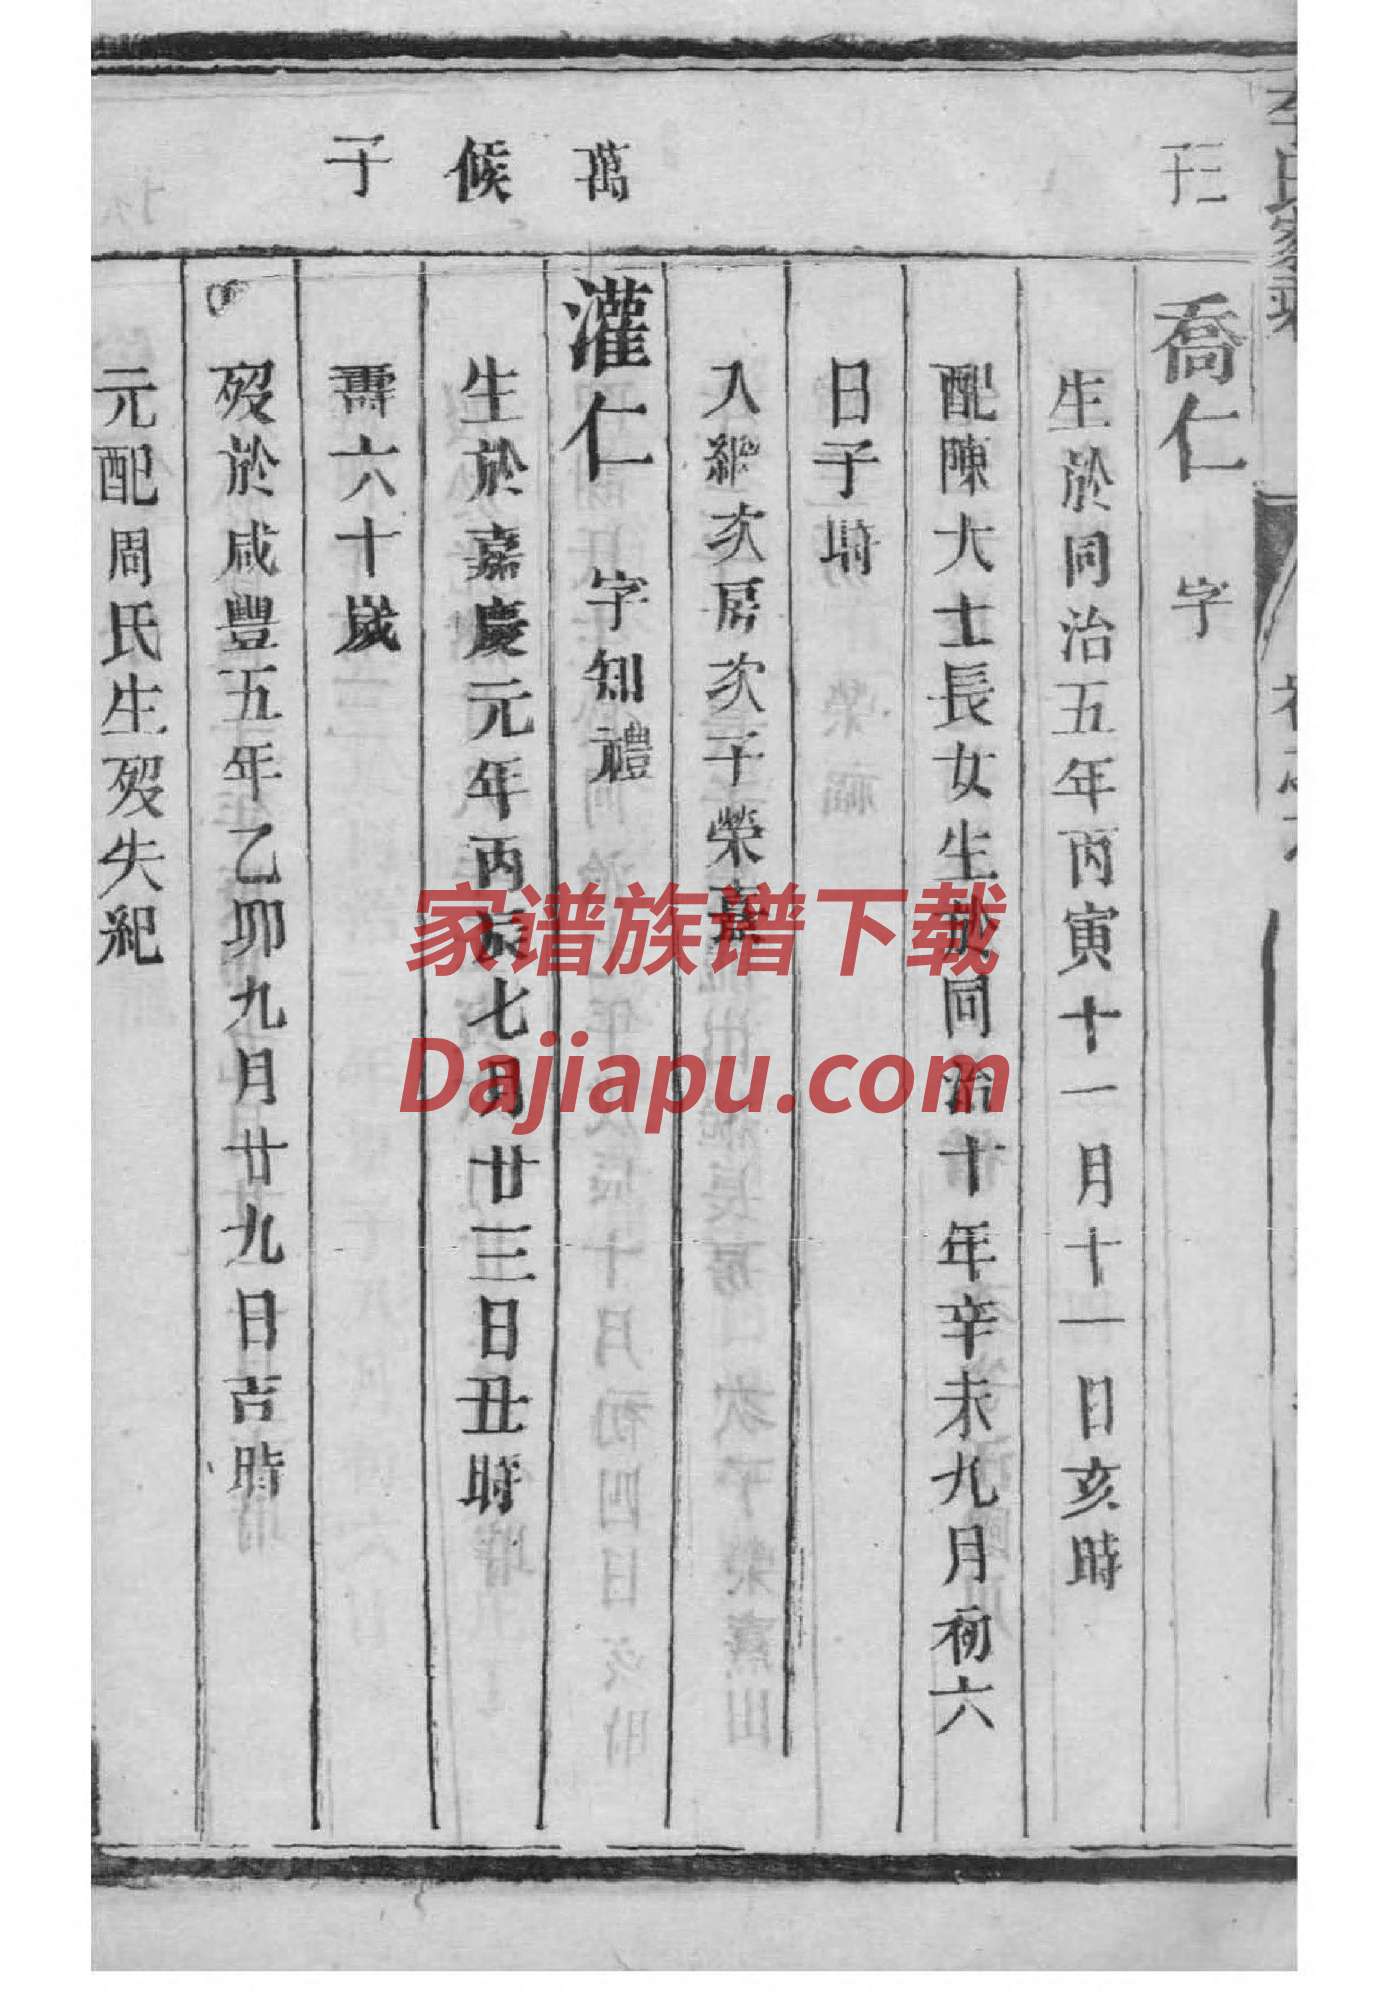 李氏家乘
三子
喬仁 字
生於同治五年丙寅十一月十一日亥時
配陳大士長女生於同治十年辛未九月初六
日子時
入繼次房次子榮熹
萬
灌仁 字知禮
候
生於嘉慶元年丙辰七月廿三日丑時
子
壽六十歲
歿於咸豐五年乙卯九月廿九日吉時
元配周氏生歿失紀
家谱族谱下载
Dajiapu.com